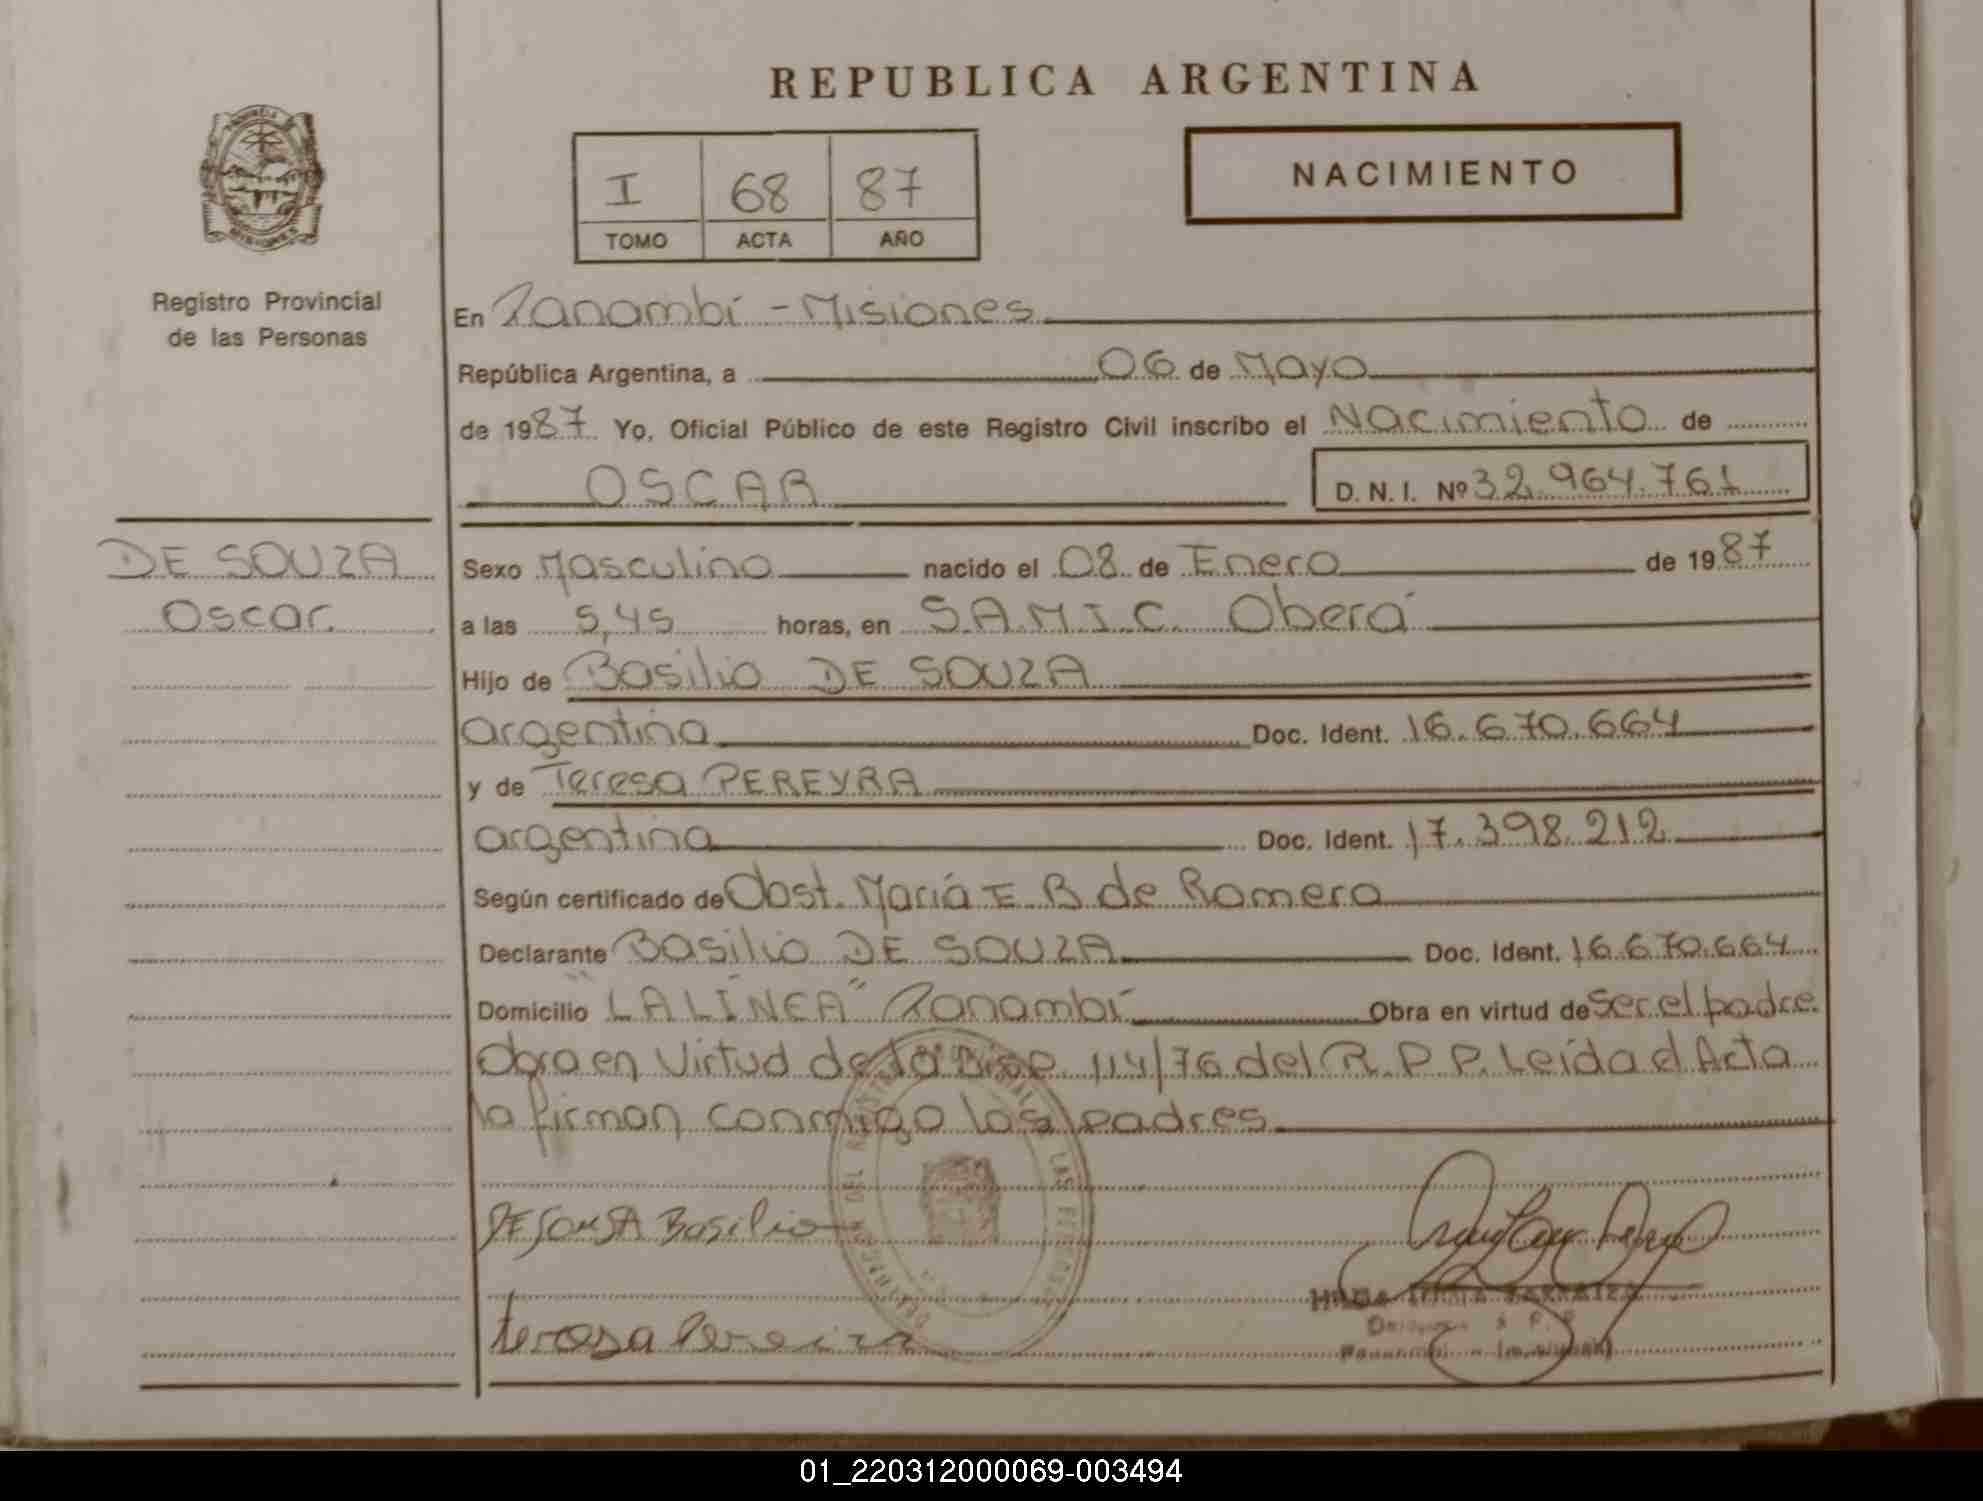 REPUBLICA ARGENTINA
I 68 87
TOMO ACTA AÑO
NACIMIENTO
Registro Provincial
de las Personas
DE SOUZA
Oscar.
En Panambí - Misiones
República Argentina, a 06 de Mayo
de 1987. Yo, Oficial Público de este Registro Civil inscribo el Nacimiento de
OSCAR D. N. I. Nº 32.964.761
Sexo Masculino nacido el 08 de Enero de 1987
a las 5,45 horas, en S.A.M.I.C. Oberá
Hijo de Basilio DE SOUZA
argentina Doc. Ident. 16.670.664
y de Teresa PEREYRA
argentina Doc. Ident. 17.398.212
Según certificado de Obst. María E B de Romero
Declarante Basilio DE SOUZA Doc. Ident. 16.670.664
Domicilio "LA LÍNEA" Panambí Obra en virtud de ser el padre.
Obra en Virtud de la Disp. 114/76 del R.P.P. Leída el Acta
la firman conmigo los padres
DE SOUSA Basilio
teresa Pereira
01_220312000069-003494